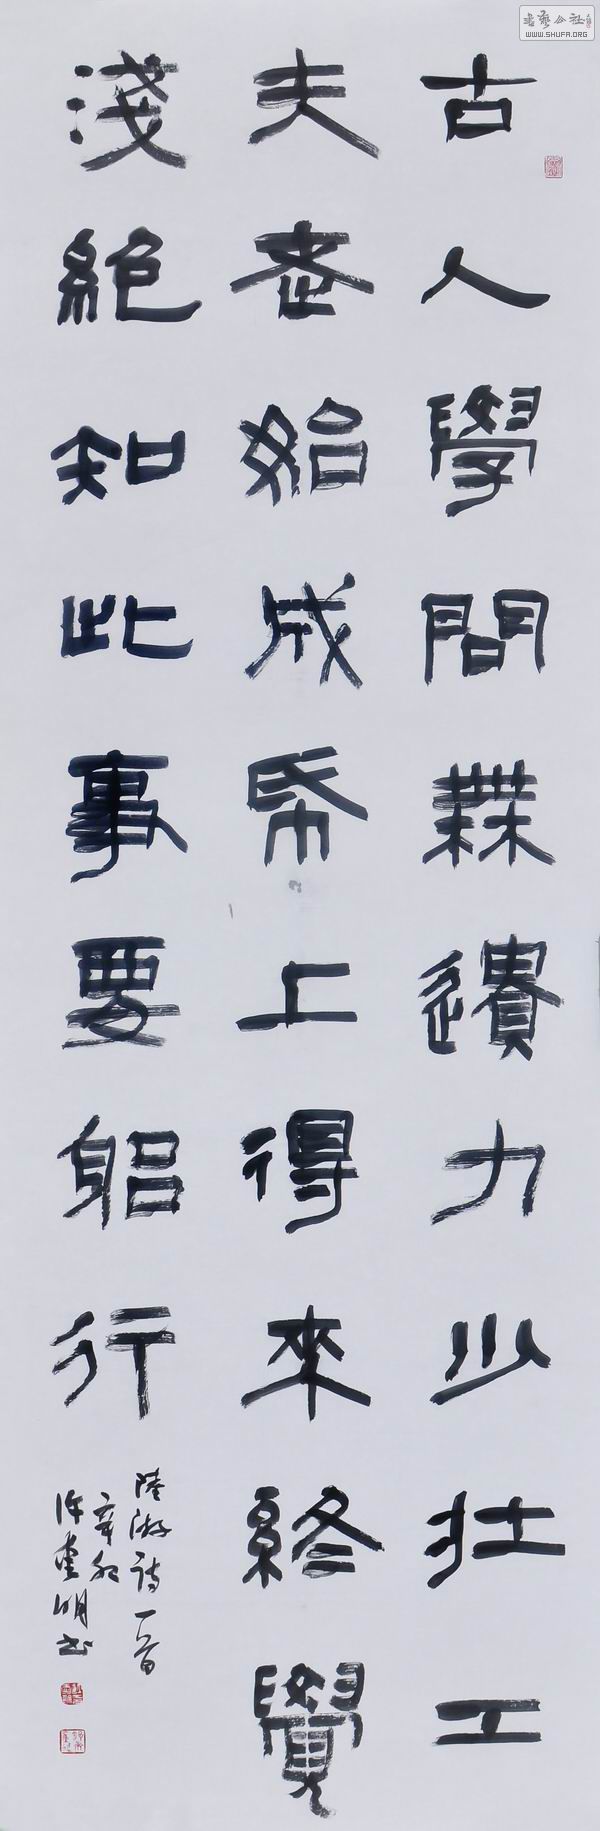 古人學問無遺力少壯工
夫老始成帋上得來終覺
淺絕知此事要躬行
陸游詩一首
辛卯
書
書藝公社
WWW.SHUFA.ORG